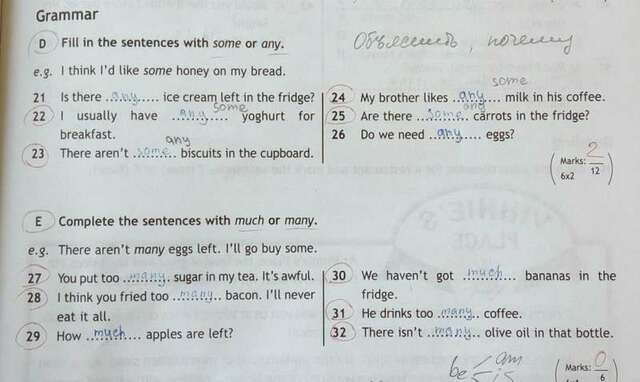 Grammar
D Fill in the sentences with some or any. Объяснить, почему
e.g. I think I'd like some honey on my bread.
21 Is there any ice cream left in the fridge?
some
22 I usually have any yoghurt for
breakfast.
any
23 There aren't some biscuits in the cupboard.
some
24 My brother likes any milk in his coffee.
any
25 Are there some carrots in the fridge?
26 Do we need any eggs?
Marks: 2
6x2 12
E Complete the sentences with much or many.
e.g. There aren't many eggs left. I'll go buy some.
27 You put too many sugar in my tea. It's awful.
28 I think you fried too many bacon. I'll never
eat it all.
29 How much apples are left?
30 We haven't got much bananas in the
fridge.
31 He drinks too many coffee.
32 There isn't many olive oil in that bottle.
be am
is
Marks: 0
6